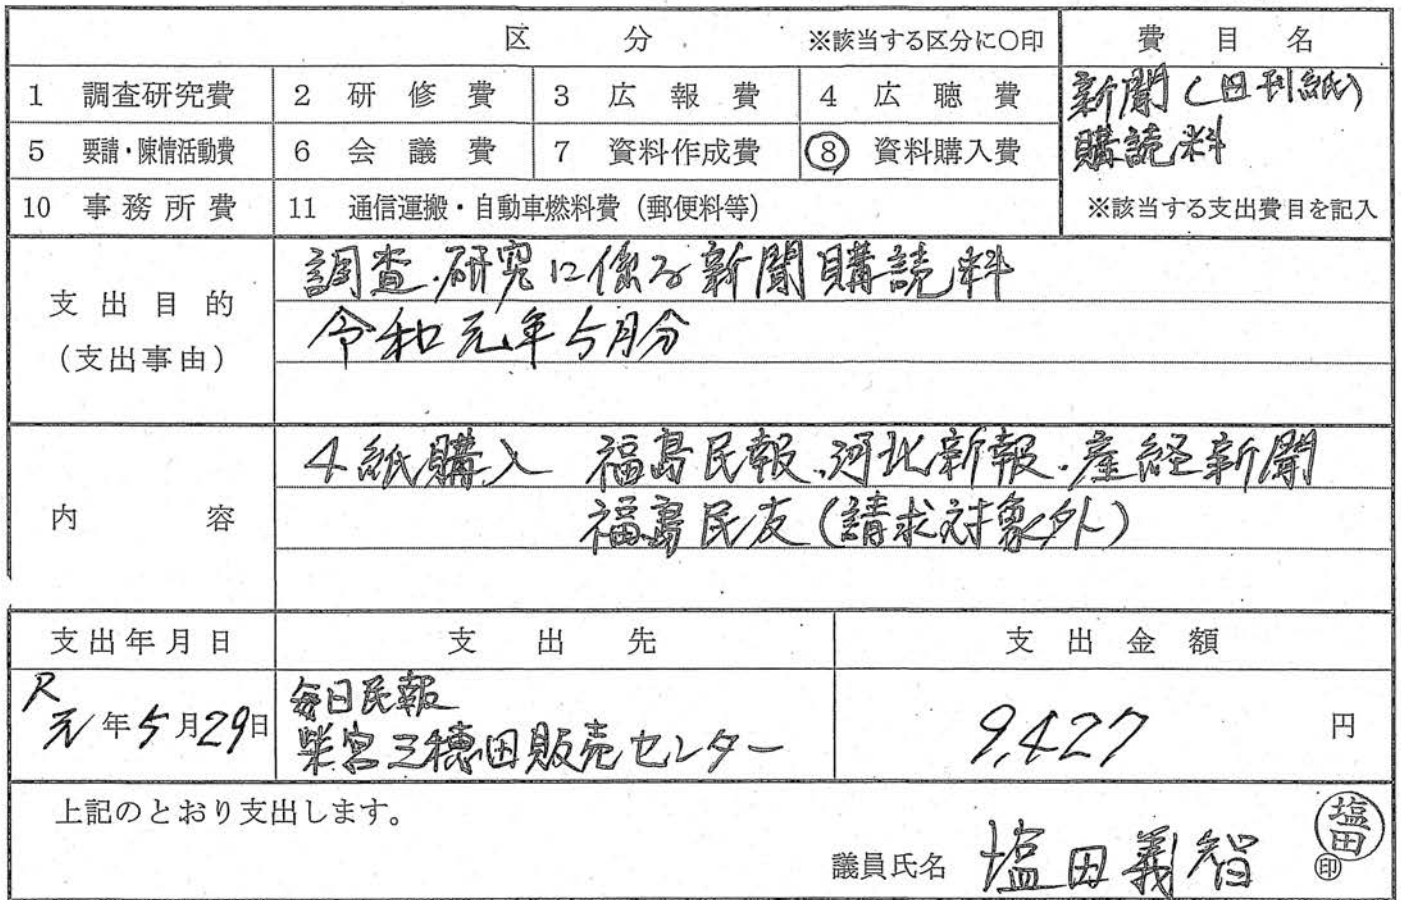 区 分 ※該当する区分に○印 費 目 名
1 調査研究費 2 研修費 3 広報費 4 広聴費 新聞(日刊紙)
5 要請・陳情活動費 6 会議費 7 資料作成費 ⑧ 資料購入費 購読料
10 事務所費 11 通信運搬・自動車燃料費(郵便料等) ※該当する支出費目を記入
支出目的
(支出事由)
調査・研究に係る新聞購読料
令和元年5月分
内 容
4紙購入 福島民報、河北新報、産経新聞
福島民友(請求対象外)
支出年月日 支出先 支出金額
R元年5月29日 毎日民報
柴宮三穂田販売センター 9,427 円
上記のとおり支出します。
議員氏名 塩田義智 塩田 印